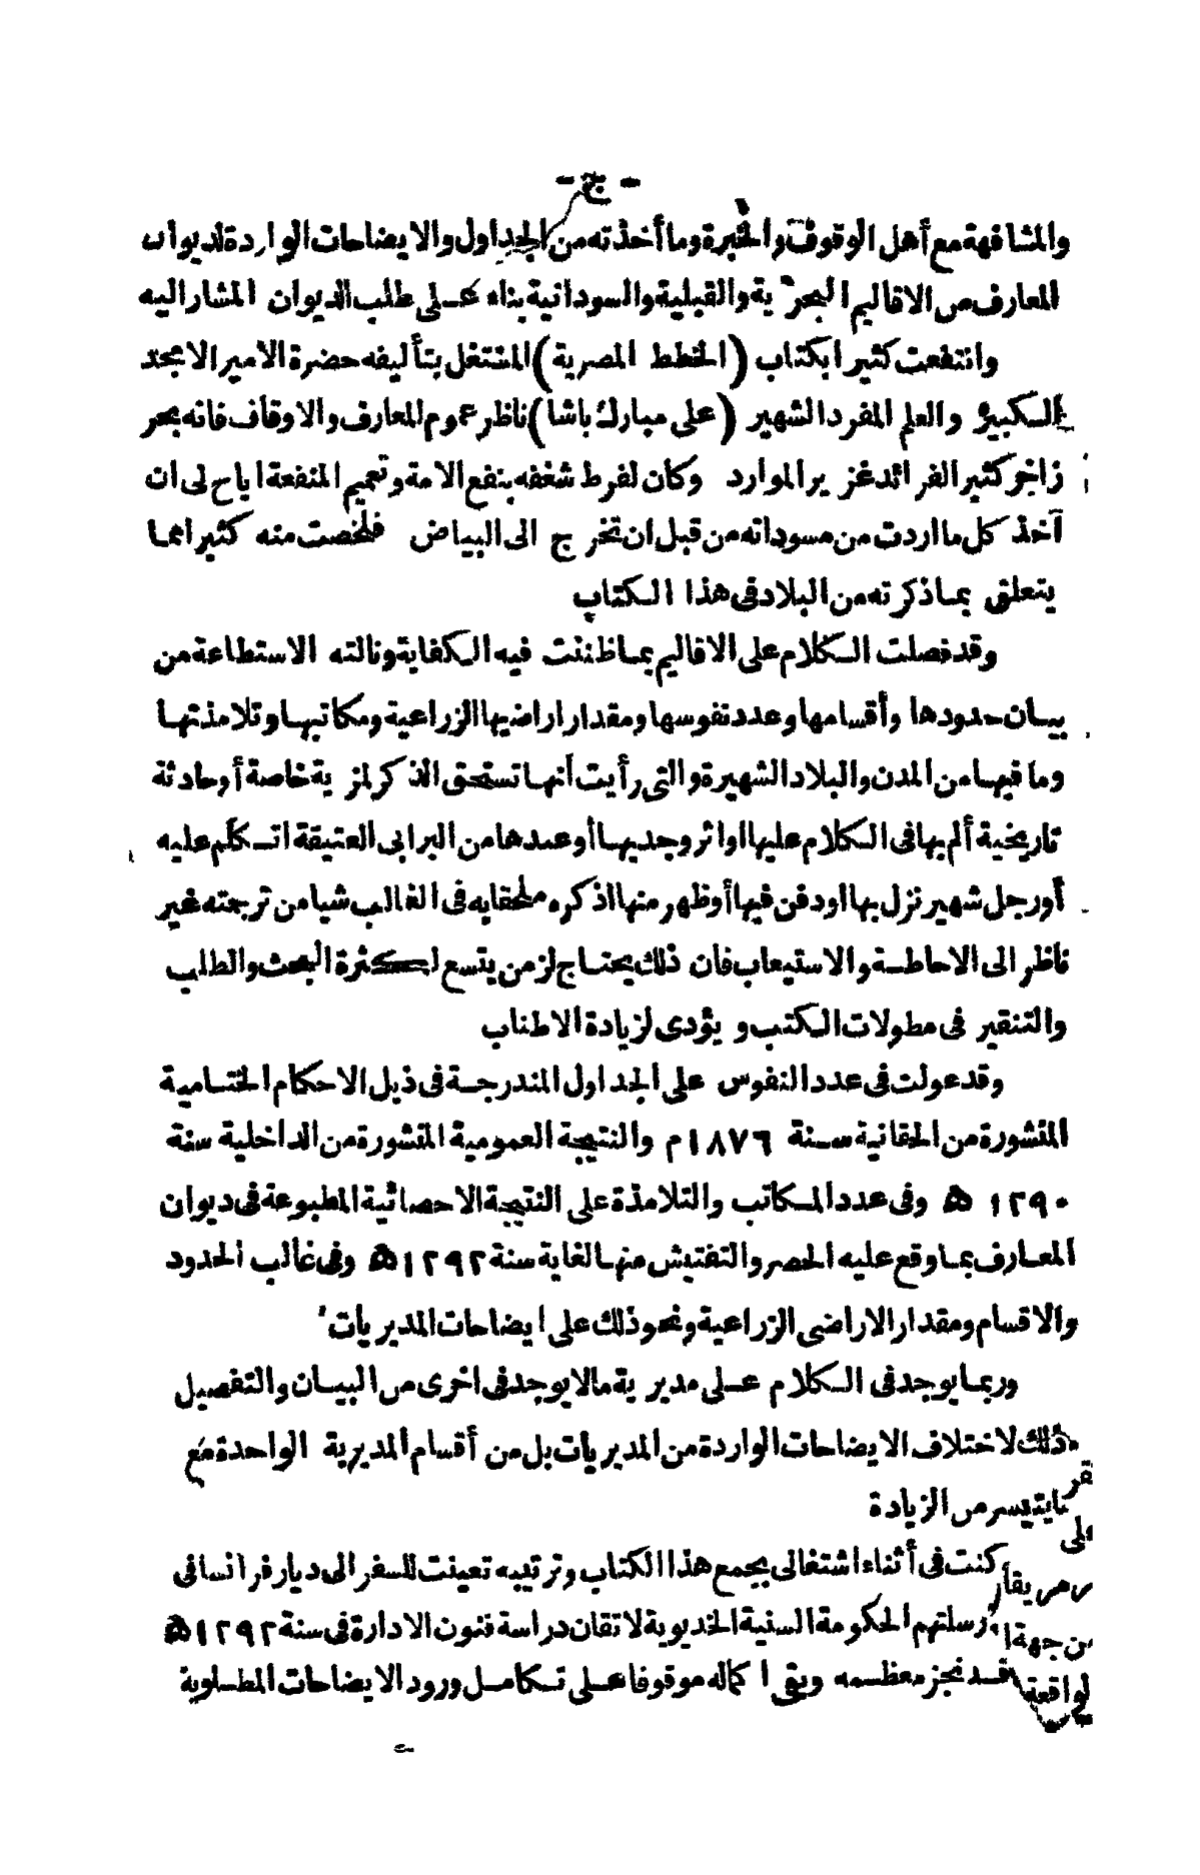 - ج -
والمشافهة مع أهل الوقوف والخبرة وما أخذته من الجداول والايضاحات الواردة لديوان
المعارف من الاقاليم البحرية والقبلية والسودانية بناء عـلى طلب الديوان المشار اليه
وانتفعت كثيرا بكتاب (الخطط المصرية) المشتغل بتأليفه حضرة الامير الامجد
الـكبير والعلم المفرد الشهير (على مبارك باشا) ناظر عموم المعارف والاوقاف فانه بحر
زاخر كثير الفرائد غزير الموارد وكان لفرط شغفه بنفع الامة وتعميم المنفعة اباح لى ان
آخذ كل ما اردت من مسوداته من قبل ان تخرج الى البياض فلخصت منه كثيرا مما
يتعلق بما ذكرته من البلاد فى هذا الـكتاب
وقد فصلت الـكلام على الاقاليم بمـا ظننت فيه الـكفاية ونالته الاستطاعة من
بيـان حدودها وأقسامها وعدد نفوسها ومقدار اراضيها الزراعية ومكاتبهـا وتلامذتهـا
وما فيهـا من المدن والبلاد الشهيرة والتى رأيت أنهـا تستحق الذكر لمزية خاصة أو حادثة
تاريخية ألم بها فى الـكلام عليها او اثر وجد بهـا أو عندها من البرابى العتيقة اتـكلم عليه
أو رجل شهير نزل بها او دفن فيها أو ظهر منها اذكره ملحقا به فى الغالب شيا من ترجمته غير
ناظر الى الاحاطـة والاستيعاب فان ذلك يحتـاج لزمن يتسع لـكثرة البحث والطلب
والتنقير فى مطولات الـكتب ويؤدى لزيادة الاطناب
وقد عولت فى عدد النفوس على الجداول المندرجـة فى ذيل الاحكام الختـامية
المنشورة من الحقانية سـنة ١٨٧٦ م والنتيجة العمومية المنشورة من الداخلية سنة
١٢٩٠ ه وفى عدد المـكاتب والتلامذة على النتيجة الاحصائية المطبوعة فى ديوان
المعـارف بمـا وقع عليه الحصر والتفتيش منهـا لغاية سنة ١٢٩٢ ه وفى غالب الحدود
والاقسام ومقدار الاراضى الزراعية ونحو ذلك على ايضاحات المديريات
وربمـا يوجد فى الـكلام عـلى مديرية مالا يوجد فى اخرى من البيـان والتفصيل
وذلك لاختلاف الايضاحات الواردة من المديريات بل من أقسام المديرية الواحدة مع
ما يتيسر من الزيادة
كنت فى أثناء اشتغالى بجمع هذا الكتاب وترتيبه تعينت للسفر الى ديار فرانسا فى
ارسلتهم الحكومة السنية الخديوية لاتقان دراسة فنون الادارة فى سنة ١٢٩٢ ه
قـد نجز معظـمه وبقى اكماله موقوفا عـلى تـكامـل ورود الايضاحات المطـلوبة